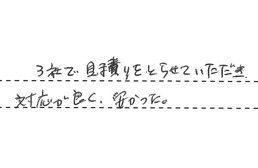 3社で見積りをとらせていただき
対応が良く、安かった。